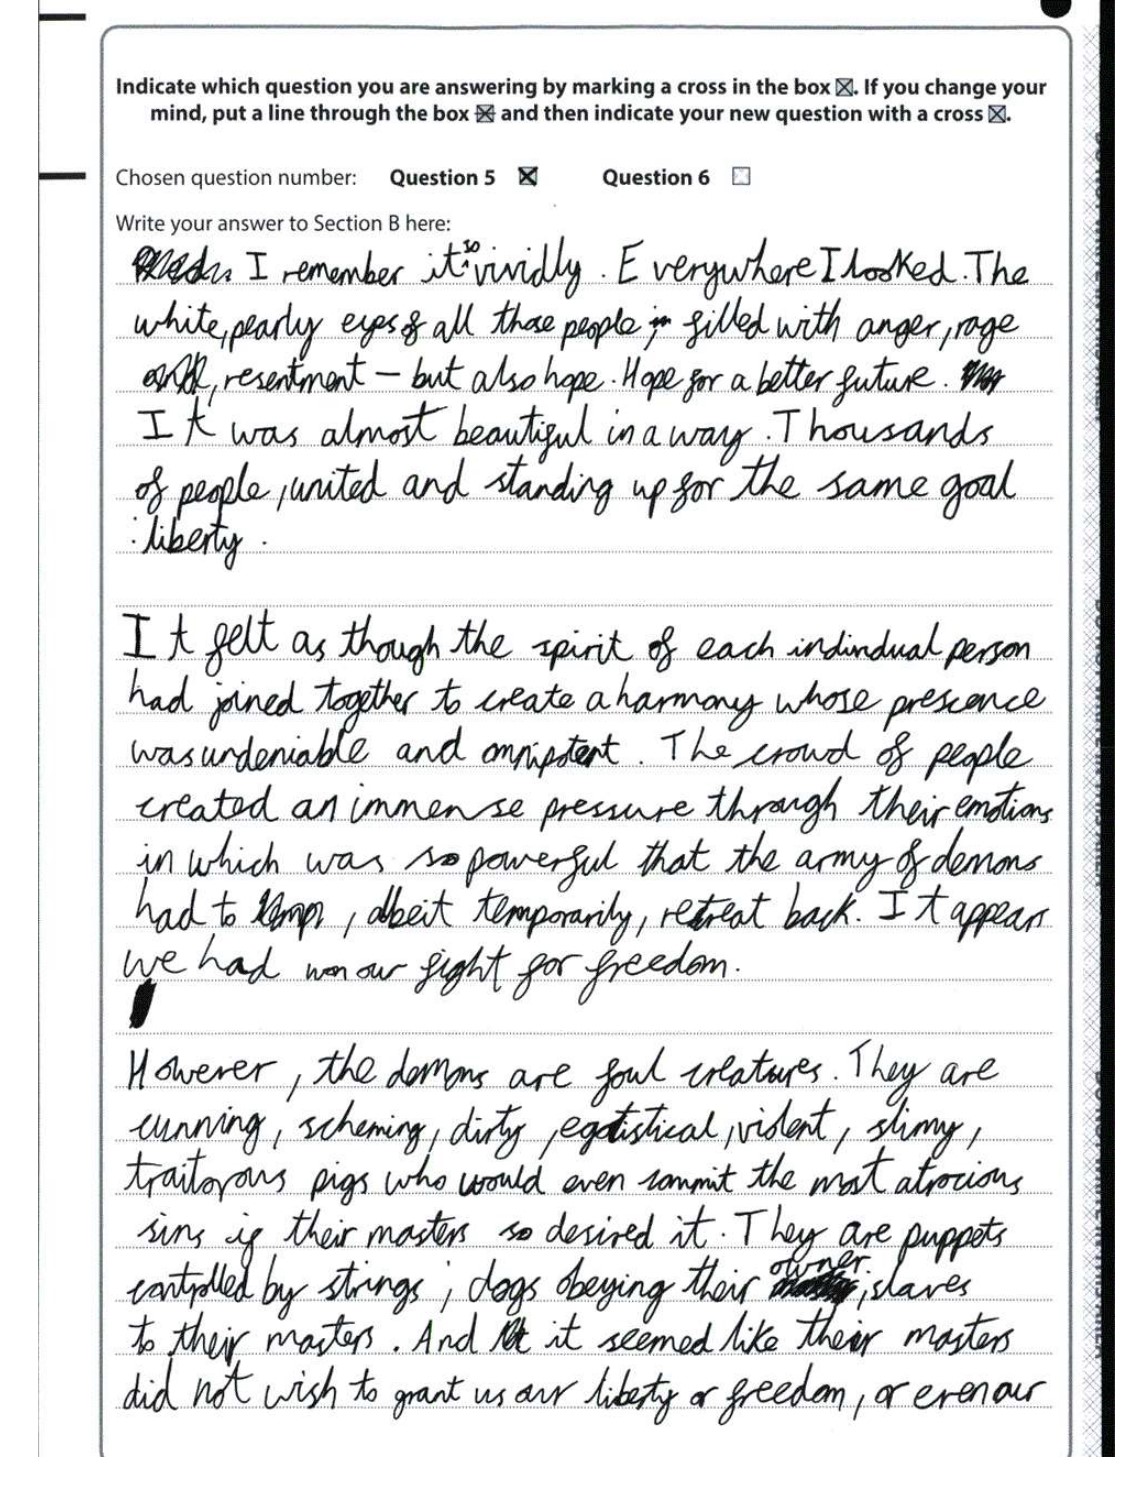 Indicate which question you are answering by marking a cross in the box ☒. If you change your
mind, put a line through the box ☒ and then indicate your new question with a cross ☒.
Chosen question number: Question 5 ☒ Question 6 ☐
Write your answer to Section B here:
I remember it so vividly. Everywhere I looked. The
white, pearly eyes of all those people filled with anger, rage
, resentment – but also hope. Hope for a better future.
It was almost beautiful in a way. Thousands
of people, united and standing up for the same goal
: liberty.
It felt as though the spirit of each indindual person
had joined together to create a harmony whose prescence
was undeniable and omnipotent. The crowd of people
created an immense pressure through their emotions
in which was so powerful that the army of demons
had to , albeit temporarily, retreat back. It appears
we had won our fight for freedom.
However, the demons are foul creatures. They are
cunning, scheming, dirty, egotistical, violent, slimy,
traitorous pigs who would even commit the most atrocious
sins if their masters so desired it. They are puppets
controlled by strings; dogs obeying their owner; slaves
to their masters. And it seemed like their masters
did not wish to grant us our liberty or freedom, or even our